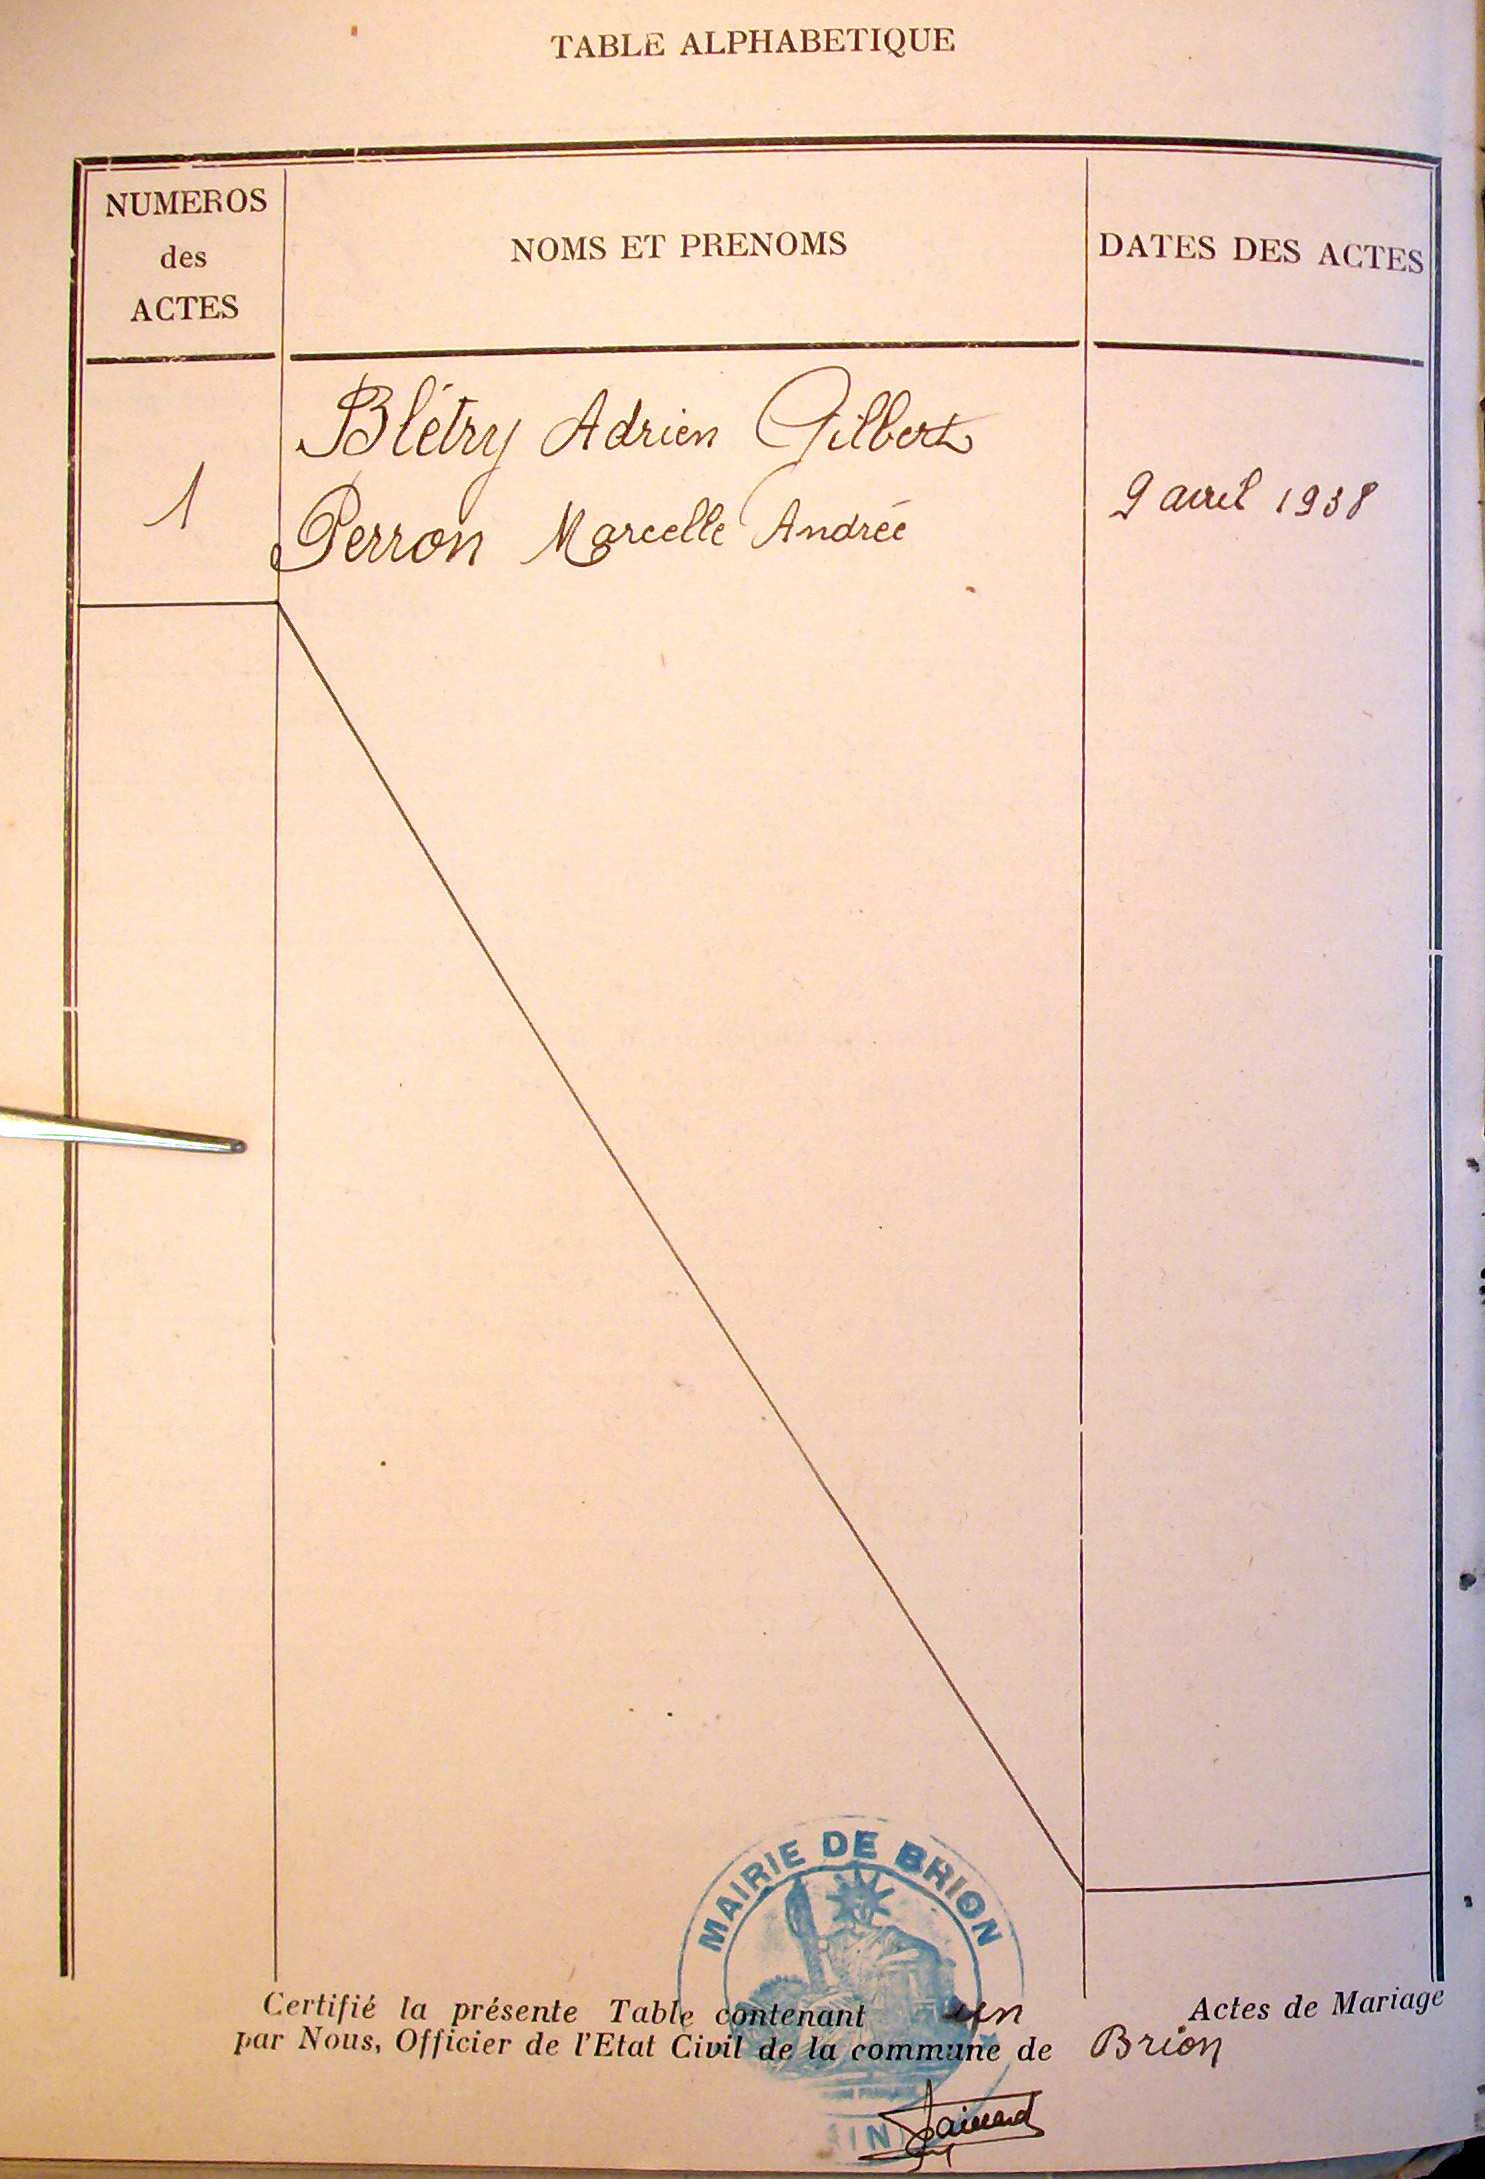 TABLE ALPHABETIQUE
NUMEROS
des
ACTES
NOMS ET PRENOMS
DATES DES ACTES
Blétry Adrien Gilbert
1
9 avril 1938
Perron Marcelle Andrée
MAIRIE DE BRION
Certifié la présente Table contenant un Actes de Mariage
par Nous, Officier de l'Etat Civil de la commune de Brion